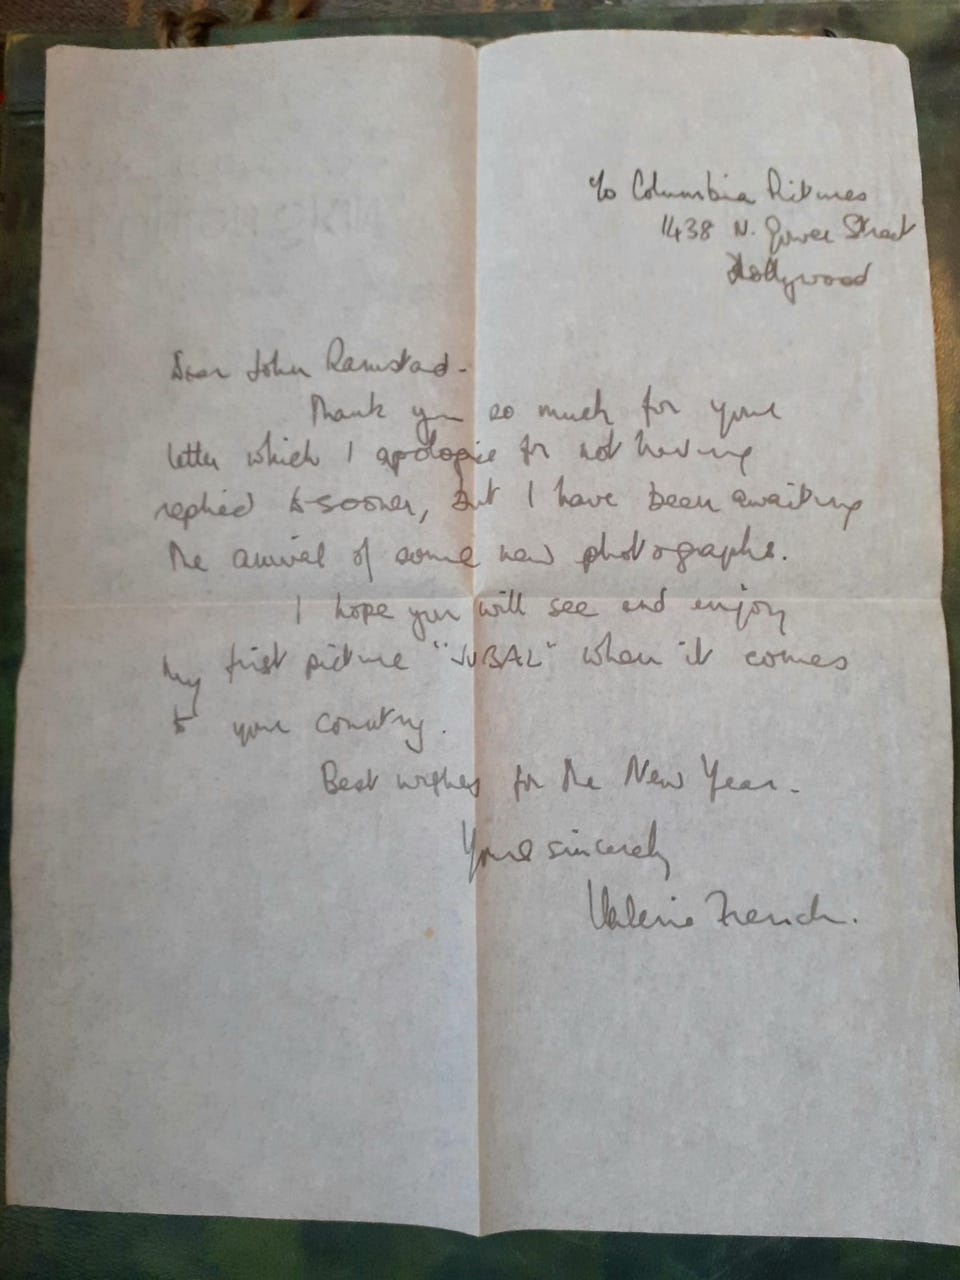 c/o Columbia Pictures
1438 N. Gower Street
Hollywood
Dear John Ramstad -
Thank you so much for your
letter which I apologie for not having
replied to sooner, but I have been awaiting
the arrival of some new photographs.
I hope you will see and enjoy
my first picture "JUBAL" when it comes
to your country.
Best wishes for the New Year.
Yours sincerely
Valerie French.